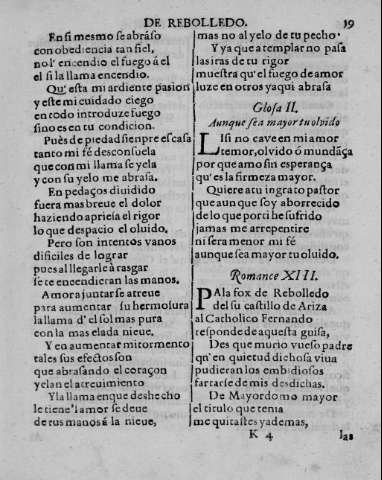 DE REBOLLEDO. 39
En si mesmo se abraso
con obediencia tan fiel,
no l' encendio el fuego à el
el si la llama encendio.
Qu' esta mi ardiente pasion
y este mi cuidado ciego
en todo introduze fuego
sino es en tu condicion.
Puès de piedad siẽpre escasa
tanto mi fé desconsuela
que con mi llama se yela
y con su yelo me abrasa.
En pedaços diuidido
fuera mas breue el dolor
haziendo apriesa el rigor
lo que despacio el oluido.
Pero son intentos vanos
dificiles de lograr
pues al llegarle à rasgar
se te encendieran las manos.
Amor a juntar se atreue
para aumentar su hermosura
la llama d' el sol mas pura
con la mas elada nieue.
Y en aumentar mi tormento
tales sus efectos son
que abrasando el coraçon
yelan el atreuimiento
Y la llama en que deshecho
le tiene l'amor se deue
de tus manos á la nieue,
mas no al yelo de tu pecho.
Y ya que a templar no pasa
las iras de tu rigor
muestra qu' el fuego de amor
luze en otros y aqui abrasa
Glosa II.
Aunque sea mayor tu olvido
LIsi no cave en mi amor
temor, olvido ó mundãça
por que amo sin esperança
qu' es la firmeza mayor.
Quiere atu ingrato pastor
que aunque soy aborrecido
de lo que por ti he sufrido
jamas me arrepentire
ni sera menor mi fé
aunque sea mayor tu oluido.
Romance XIII.
PAla fox de Rebolledo
del su castillo de Ariza
al Catholico Fernando
responde de aquesta guisa,
Des que murio vueso padre
qu' en quietud dichosa viua
pudieran los embidiosos
fartarse de mis desdichas.
De Mayordomo mayor
el titulo que tenia
me quitastes y ademas,
K 4 las